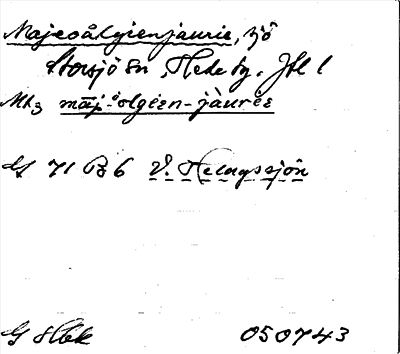 Majeoålgienjaurie, sjö
Storsjö sn, Hede tg. Jtl l
Mt3 māj-olgien-jàurēe
GS 71 B 6 V. Helagssjön
G Hbk 050743